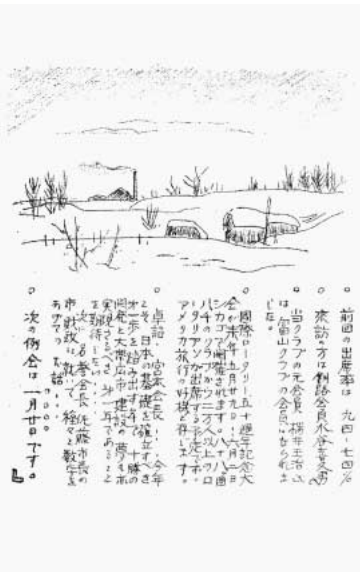 。前回の出席率は 九四・七四%
。来訪方は釧路会員水谷喜久男
。当クラブの元会員 桜井玉治
は富山クラブの会員になられま
した。
。国際ロータリー五十週年記念大
会が来年五月廿九日~六月二日
シカゴで開催されます。八十八国
八千のクラブから二万人以上のロ
ータリアンが出席する予定です。
アメリカ旅行の好機と存じます。
。卓話 宮本会長・・今年
こそ日本の基礎を確立すべき
第一歩を踏み出す年で十勝の
開発と大帯広市建設の夢も亦
実現さるべき第一年であること
を期待したい・・
次に 会長 佐藤市長の
市財政に就て 徐々と数字を
あげてのお話・・・
。次の例会は 一月廿日です。